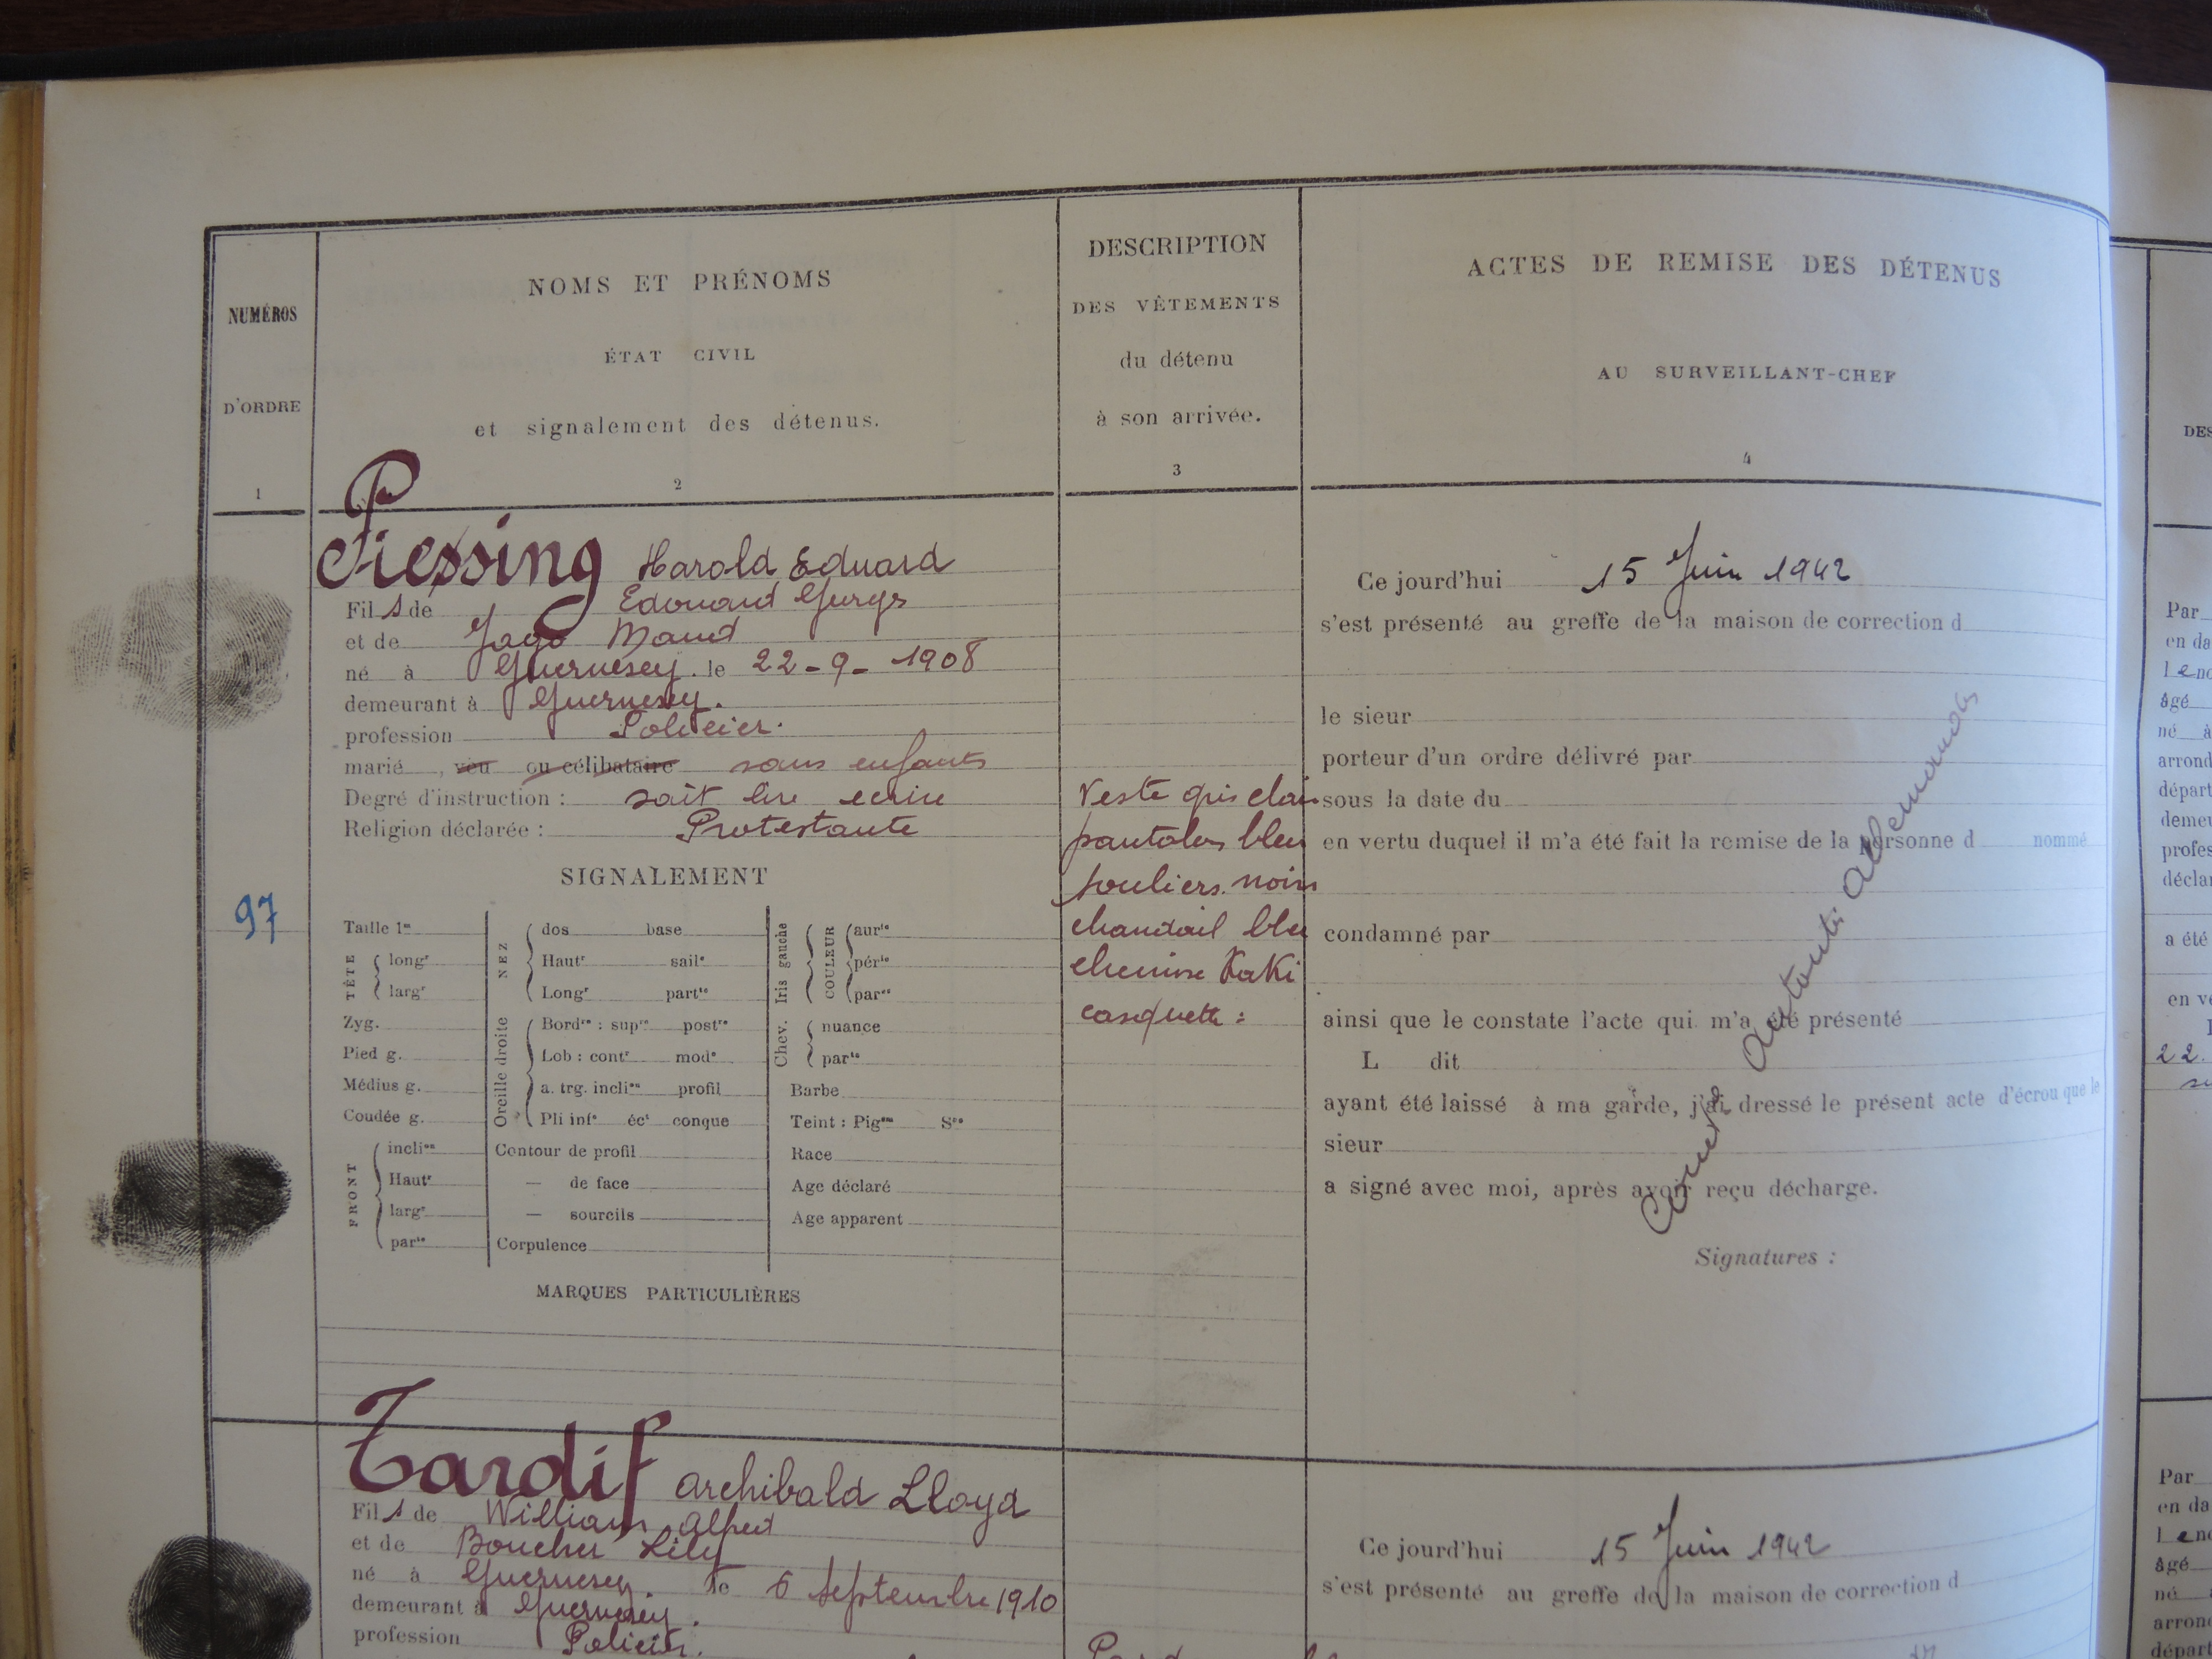 NUMÉROS
D'ORDRE
1
NOMS ET PRÉNOMS
ÉTAT CIVIL
et signalement des détenus.
2
DESCRIPTION
DES VÊTEMENTS
du détenu
à son arrivée.
3
ACTES DE REMISE DES DÉTENUS
AU SURVEILLANT-CHEF
4
97
Piessing Harold Eduard
Fils de Edouard
et de Jago Maud
né à Guernesey. le 22-9-1908
demeurant à Guernesey.
profession Policier.
marié, veu ou célibataire sans enfants
Degré d'instruction : sait lire ecrire
Religion déclarée : Protestante
SIGNALEMENT
Taille 1m
TÊTE
longr
largr
Zyg.
Pied g.
Médius g.
Coudée g.
FRONT
inclion
Hautr
largr
parte
NEZ
dos base
Hautr saile
Longr partie
Oreille droite
Bordre : supre postre
Lob : contr mode
a. trg. inclion profil
Pli infe éct conque
Contour de profil
— de face
— sourcils
Corpulence
Iris gauche
COULEUR
aurle
périe
parés
Chev.
nuance
parte
Barbe
Teint : Pigre Sre
Race
Age déclaré
Age apparent
MARQUES PARTICULIÈRES
Veste gris clair
pantalon bleu
souliers noirs
chandail bleu
chemise Kaki
casquette :
Ce jourd'hui 15 Juin 1942
s'est présenté au greffe de la maison de correction d
le sieur
porteur d'un ordre délivré par
sous la date du
en vertu duquel il m'a été fait la remise de la personne d nommé
condamné par
ainsi que le constate l'acte qui m'a été présenté
L dit
ayant été laissé à ma garde, j'ai dressé le présent acte d'écrou que le
sieur
a signé avec moi, après avoir reçu décharge.
Signatures :
autorités allemandes
Tardif Archibald Lloyd
Fils de William Alfred
et de Boucher Lily
né à Guernesey. le 6 Septembre 1910
demeurant à Guernesey.
profession Policier.
Ce jourd'hui 15 Juin 1942
s'est présenté au greffe de la maison de correction d
DES
Par
en da
né à
arrond
départ
demeu
profes
déclar
a été
en ve
22.
Par
en da
âgé
né
arrond
départ